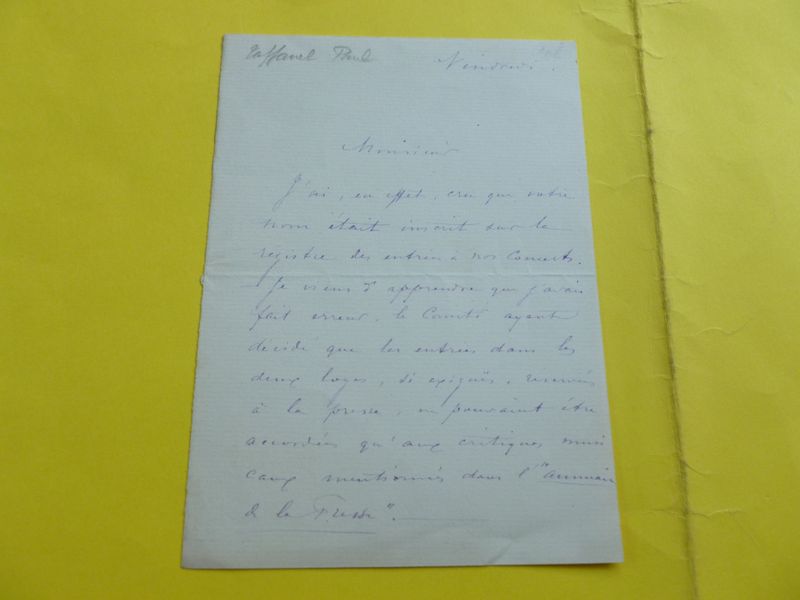 Taffanel Paul
Vendredi.
Monsieur
J'ai, en effet, cru que votre
nom était inscrit sur le
registre des entrées à nos Concerts.
Je viens d'apprendre que j'avais
fait erreur, le Comité ayant
décidé que les entrées dans les
deux loges, si exiguës, réservées
à la presse, ne pouvaient être
accordées qu'aux critiques musi
caux mentionnés dans l'"annuaire
de la Presse".